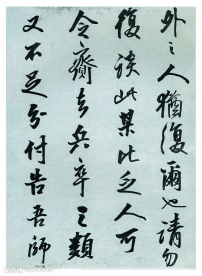 外之人猶復爾也請勿
復談此某比乏人可
令齎去兵卒之類
又不足分付告吾師